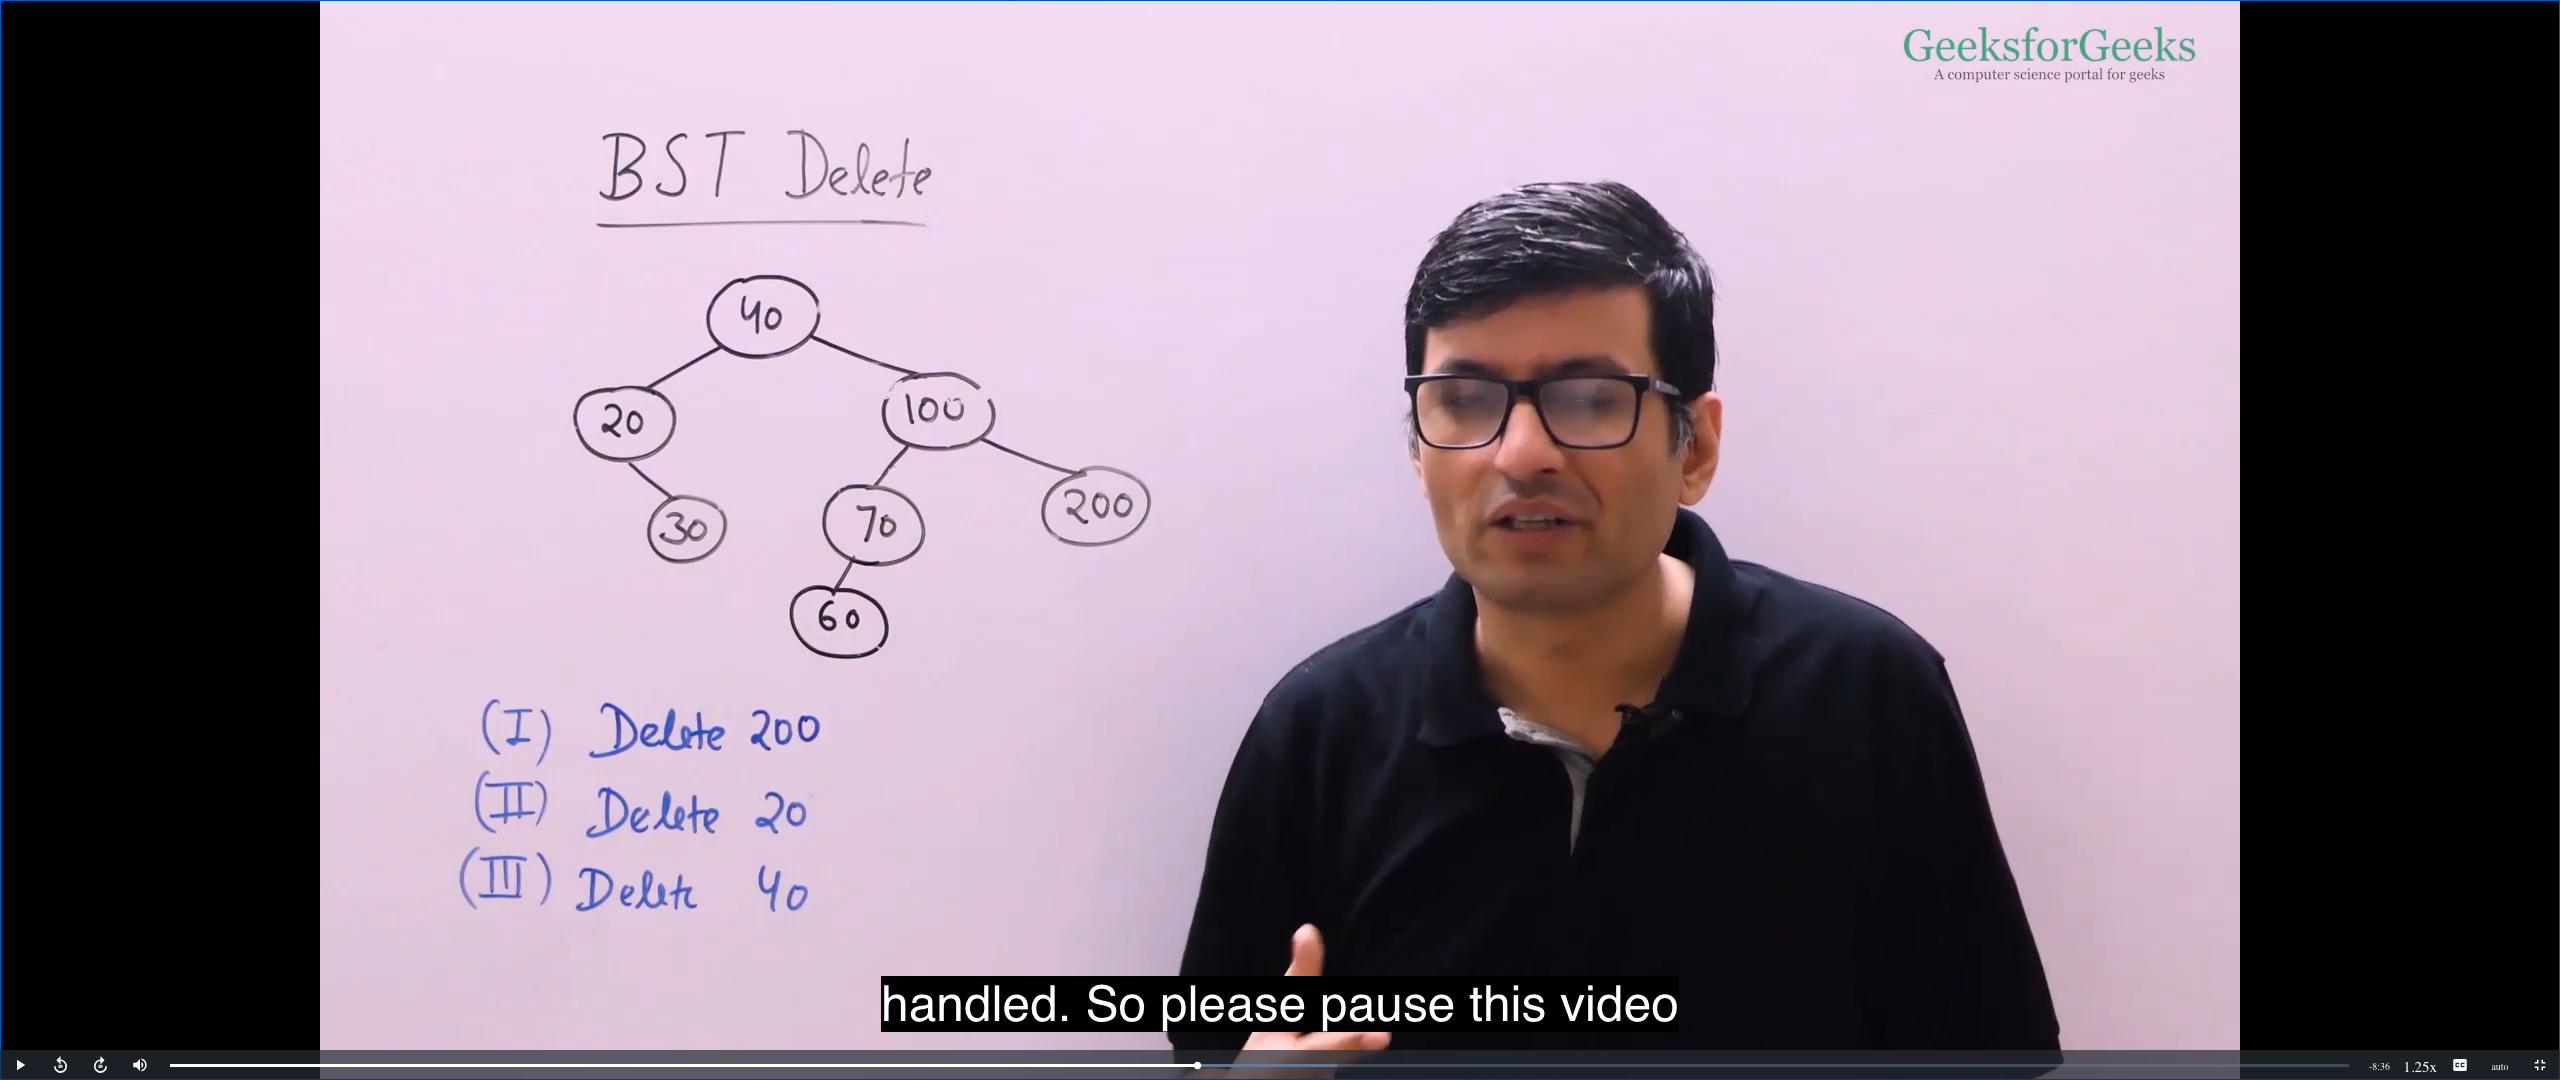 GeeksforGeeks
A computer science portal for geeks
BST Delete
40
20
100
30
70
200
60
(I) Delete 200
(II) Delete 20
(III) Delete 40
handled. So please pause this video
-8:36
1.25x
CC
auto